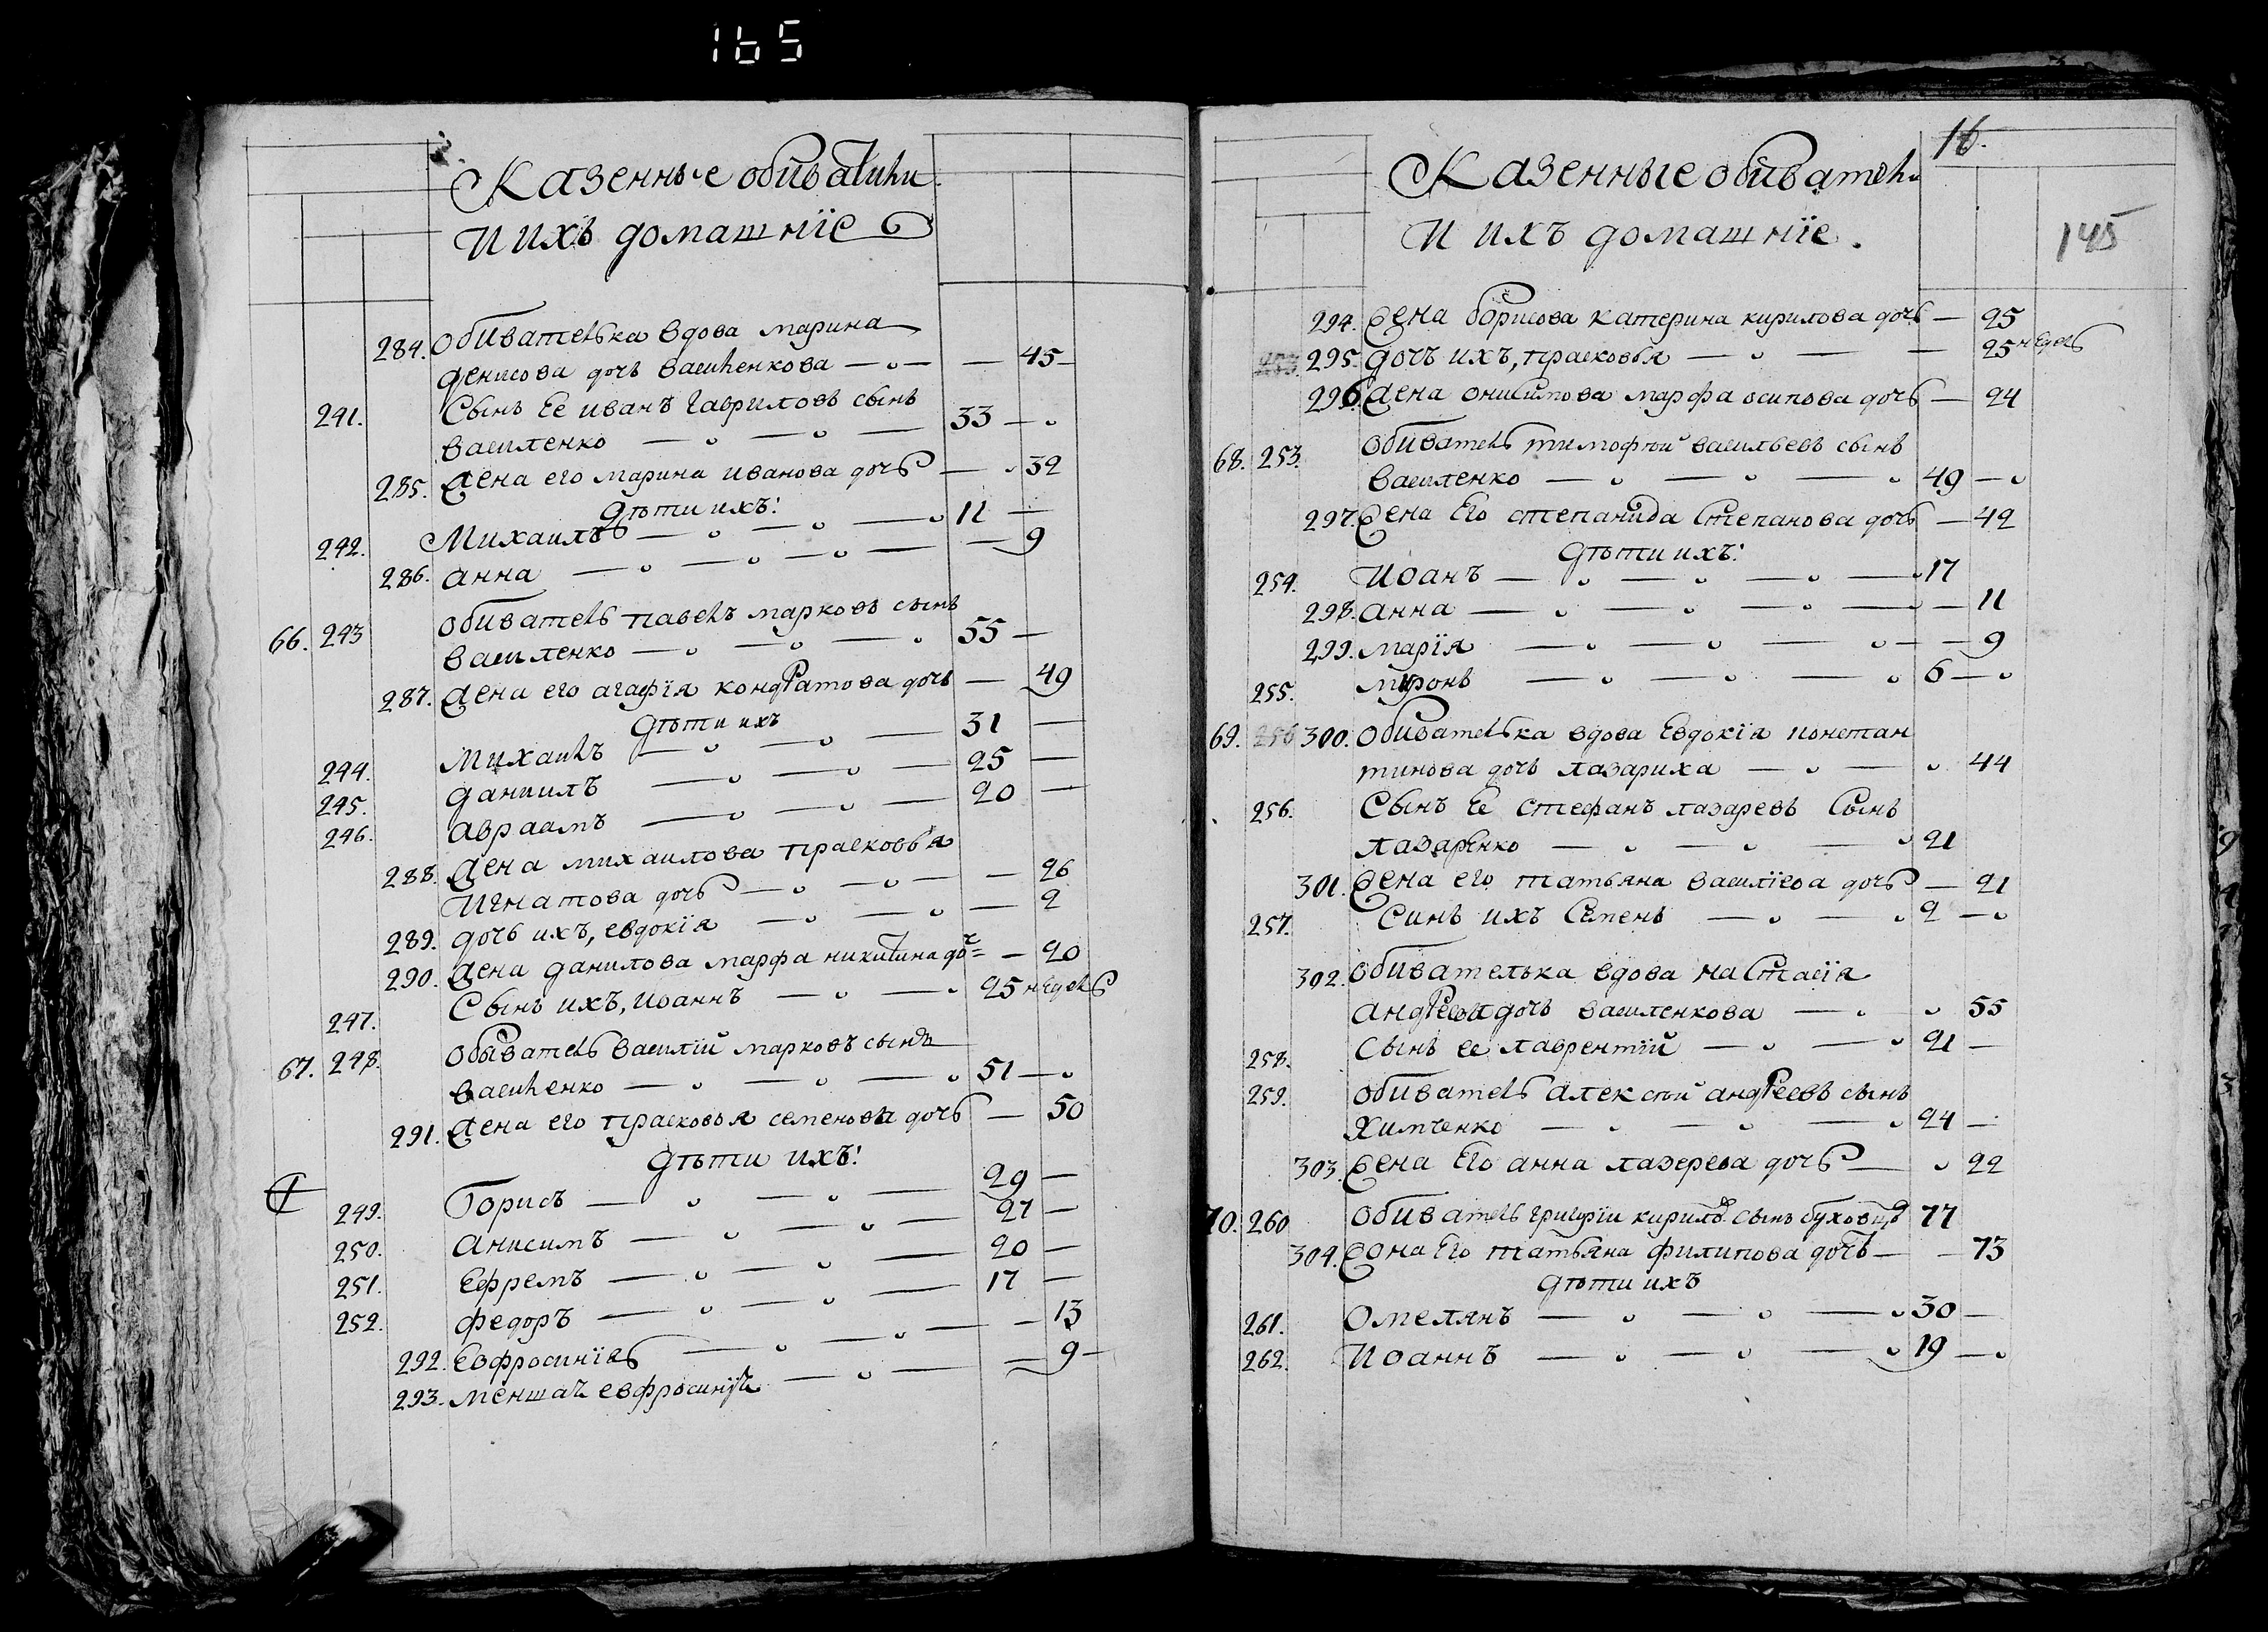 165
Казенные обиватили
И ихъ домашніе
284. Обивателка вдова марина
денисова дочь василенкова — 45
241. Сынъ Ее иванъ Гавриловъ сынъ
василенко — 33 —
285. Жена его марина иванова дочь — 32
Дѣти ихъ:
242. Михаилъ — 11 —
286. анна — 9
66. 243 обиватель павелъ марковъ сынъ
василенко — 55 —
287. Жена его агафія кондратова дочь — 49
Дѣти ихъ
244. Михаилъ — 31 —
245. даниилъ — 25 —
246. авраамъ — 20 —
288. Жена михаилова прасковья
Игнатова дочь — 26
289. дочь ихъ, евдокія — 2
290. Жена данилова марфа никитина доч — 20
247. Сынъ ихъ, иоаннъ — 25 недель
67. 248. обыватель василій марковъ сынъ
василенко — 51 —
291. Жена его прасковья семенова дочь — 50
Дѣти ихъ:
249. Борисъ — 29 —
250. Анисимъ — 27 —
251. Ефремъ — 20 —
252. Федоръ — 17 —
292. Евфросинія — 13
293. меншая евфросинія — 9 —
16.
145
Казенные обиватели
И ихъ домашніе.
294. Жена борисова катерина кирилова дочь — 25
295. дочъ ихъ, прасковья — 25 недель
296. Жена онисимова марфа осипова дочь — 24
68. 253. обиватель тимофѣй васильевъ сынъ
василенко — 49 —
297. Жена Его степанида Степанова дочь — 42
Дѣти ихъ:
254. Иоанъ — 17
298. анна — 11
299. марія — 9
255. миронъ — 6 —
69. 256 300. обивателка вдова Евдокія конста‌н
тинова дочь лазариха — 44
256. Сынъ Ее стефанъ лазаревъ Сынъ
лазаренко — 21
301. Жена его татьяна василіева дочь — 21
257. Синъ ихъ Семенъ — 2 —
302. обивателька вдова настасія
андреева дочь василенкова — 55
258. Сынъ ее лаврентій — 21 —
259. обиватель алексѣй андреевъ сынъ
Химченко — 24 —
303. Жена Его анна лазерева дочь — 22
70. 260 обиватель григорїи кирилов сынъ буховцъ 77
304. Жена Его татьяна филипова дочъ — 73
Дѣти ихъ
261. Омелянъ — 30 —
262. Иоаннъ — 19 —